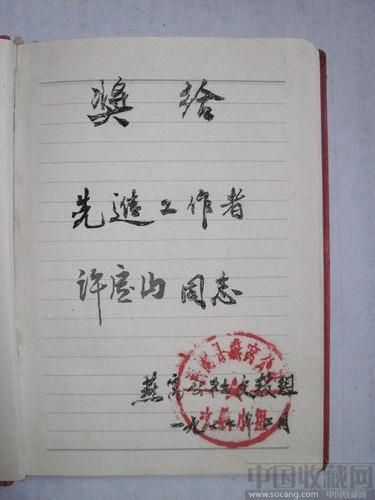 奖给
先进工作者
许宝山同志
燕窝公社文教组
中国收藏网
www.socang.com
中国收藏网